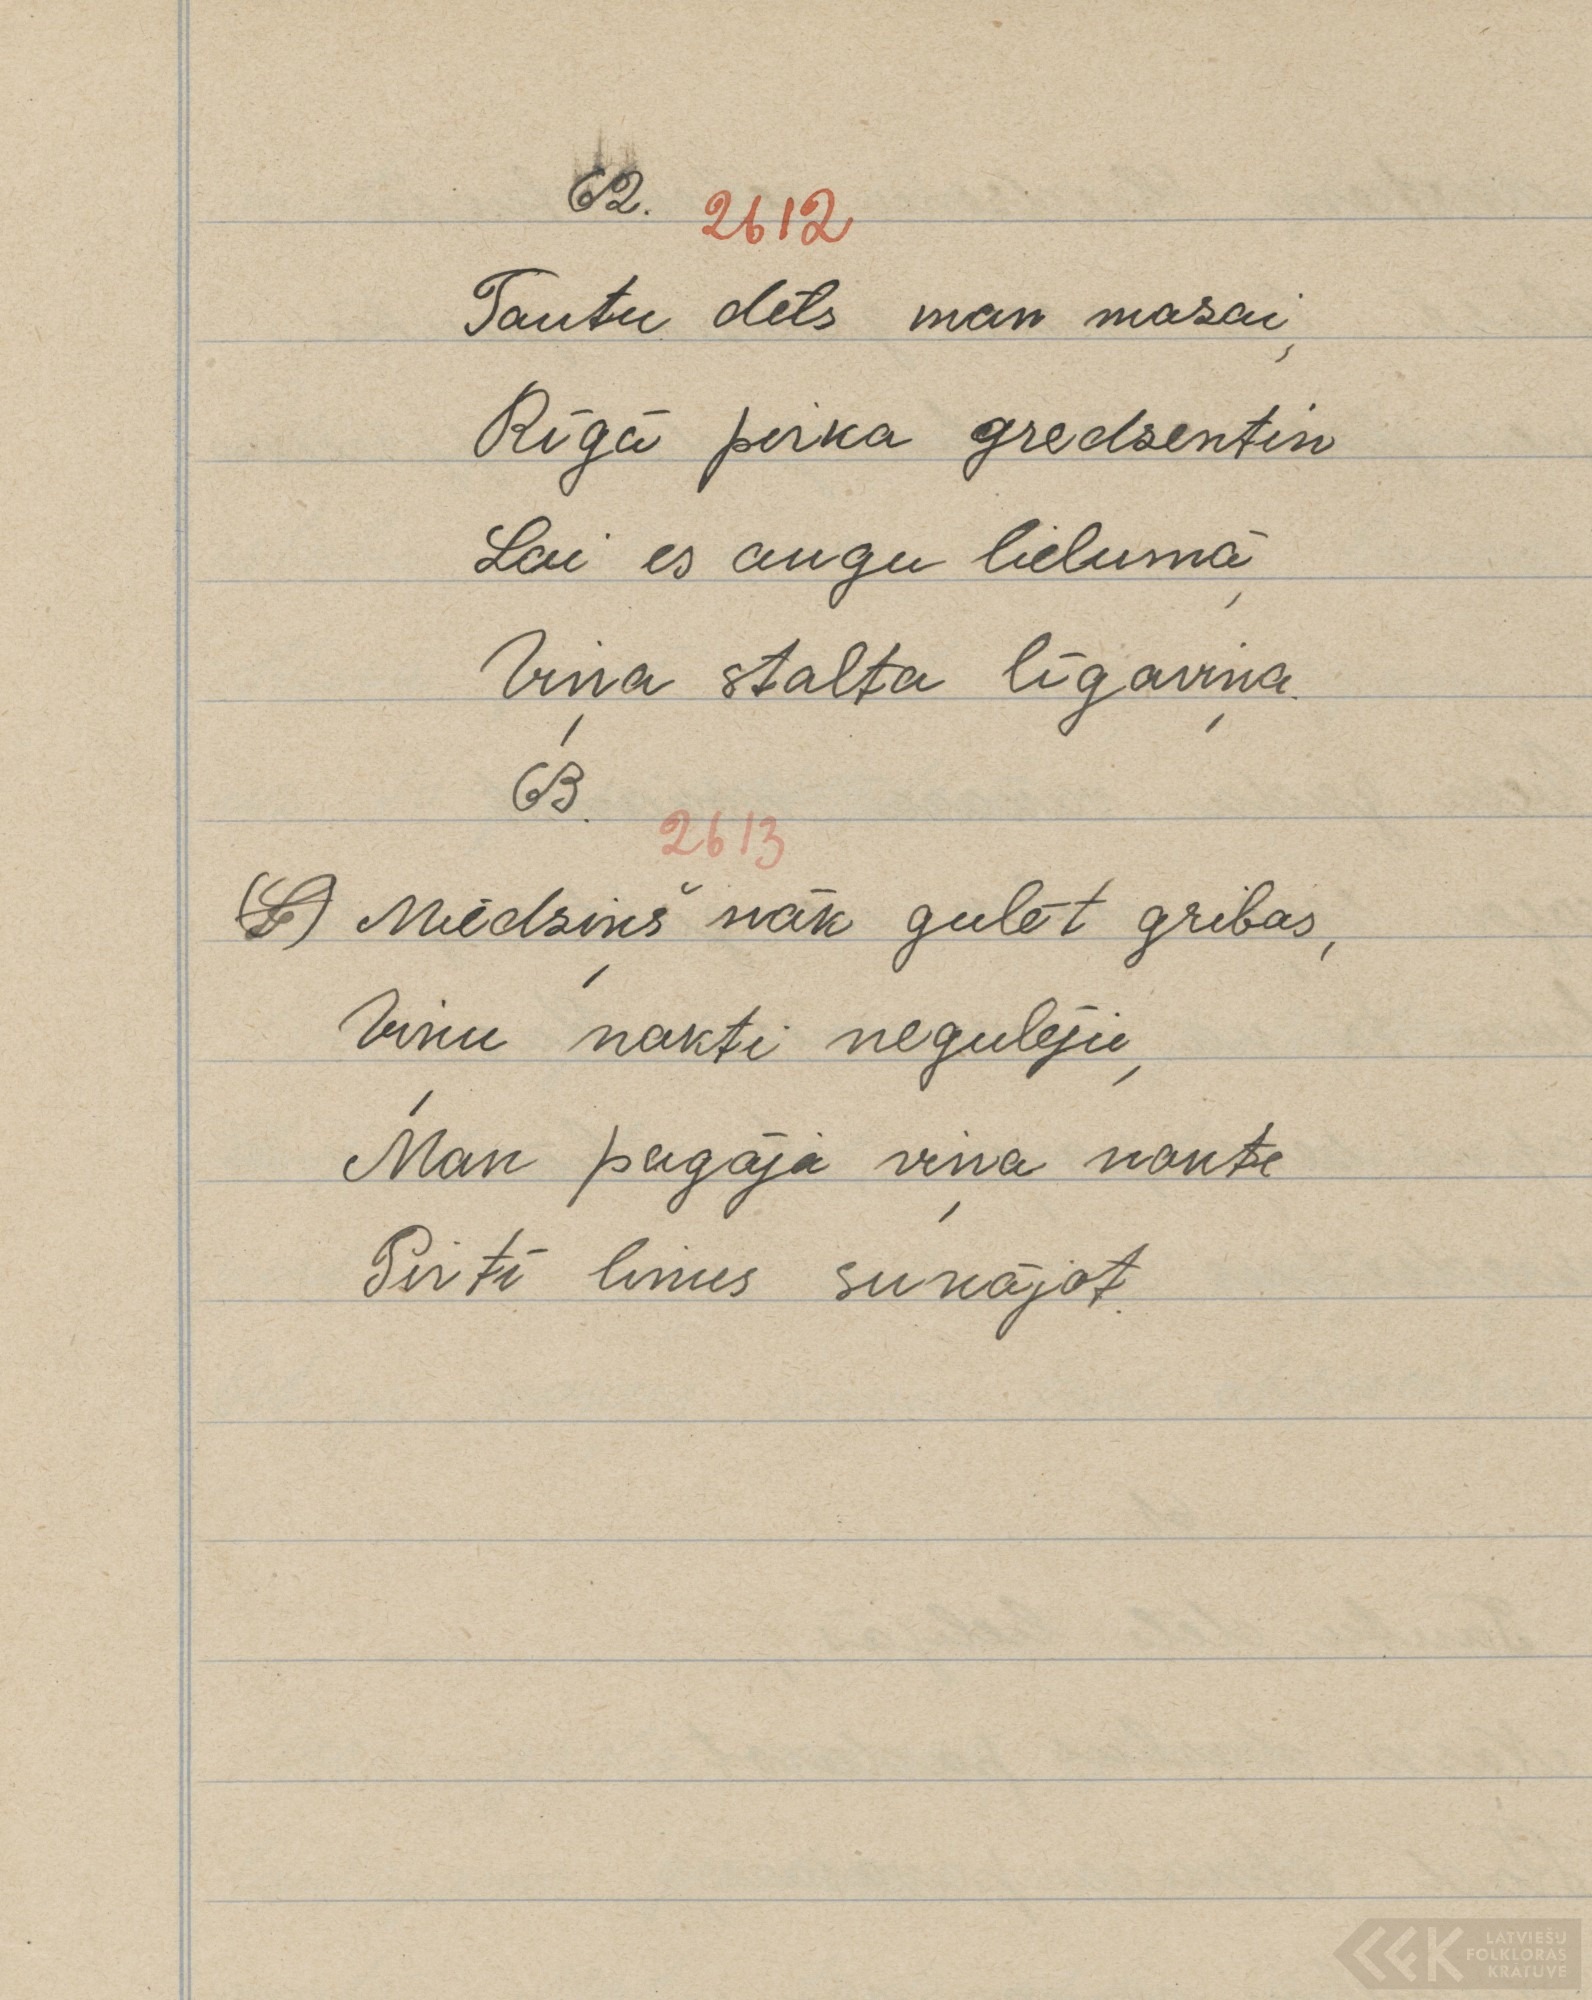 62. 2612
Tautu dēls man masai,
Rīgā pirka gredsentin
Lai es augu lielumā,
Viņa stalta līgaviņa.
63.
2613
Miedsiņš nāk gulēt gribas,
Viņu nakti negulēju,
Man pagāja viņa nakte
Pirtī linus sukājot.
LATVIEŠU
FOLKLORAS
KRĀTUVE